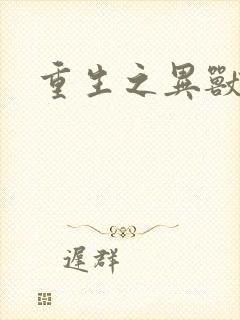 重生之異獸
遲群